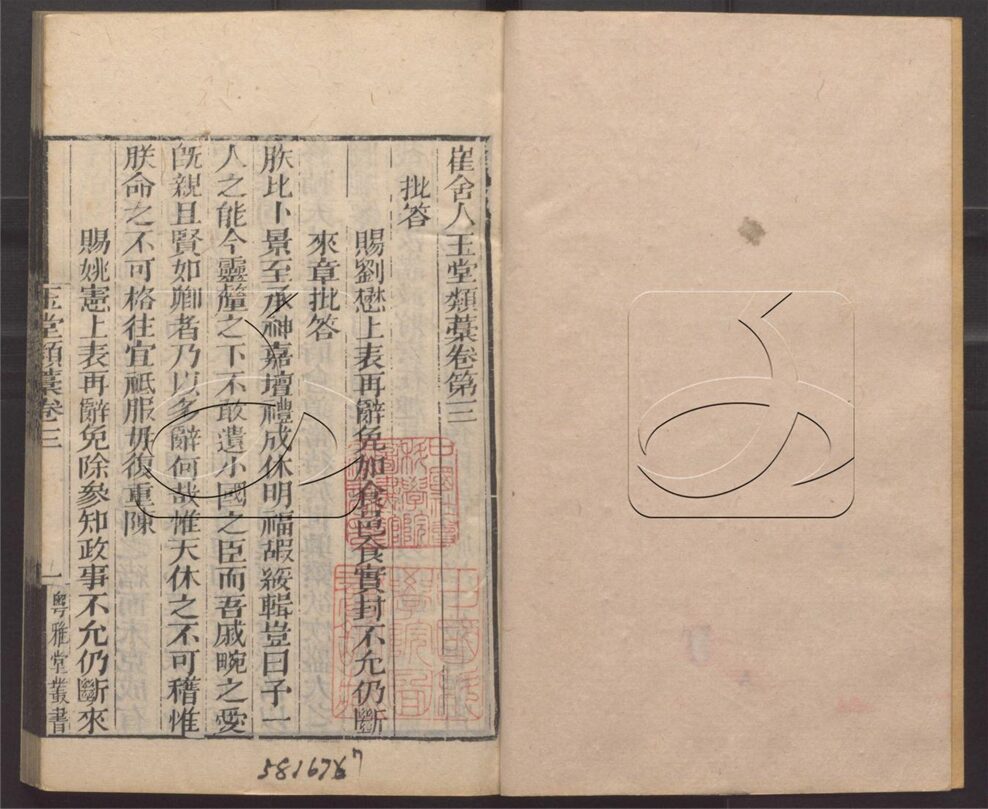 崔舍人玉堂類藁卷第三
批答
賜劉懋上表再辭免加食邑食實封不允仍斷
來章批答
朕比卜景至承神嘉壇禮成休明福嘏綏輯豈曰予一
人之能今靈釐之下不敢遺小國之臣而吾戚畹之愛
旣親且賢如卿者乃以多辭何哉惟天休之不可稽惟
朕命之不可格往宜祗服毋復重陳
賜姚憲上表再辭免除參知政事不允仍斷來
玉堂類藁卷三
一
粤雅堂叢書
581676
7